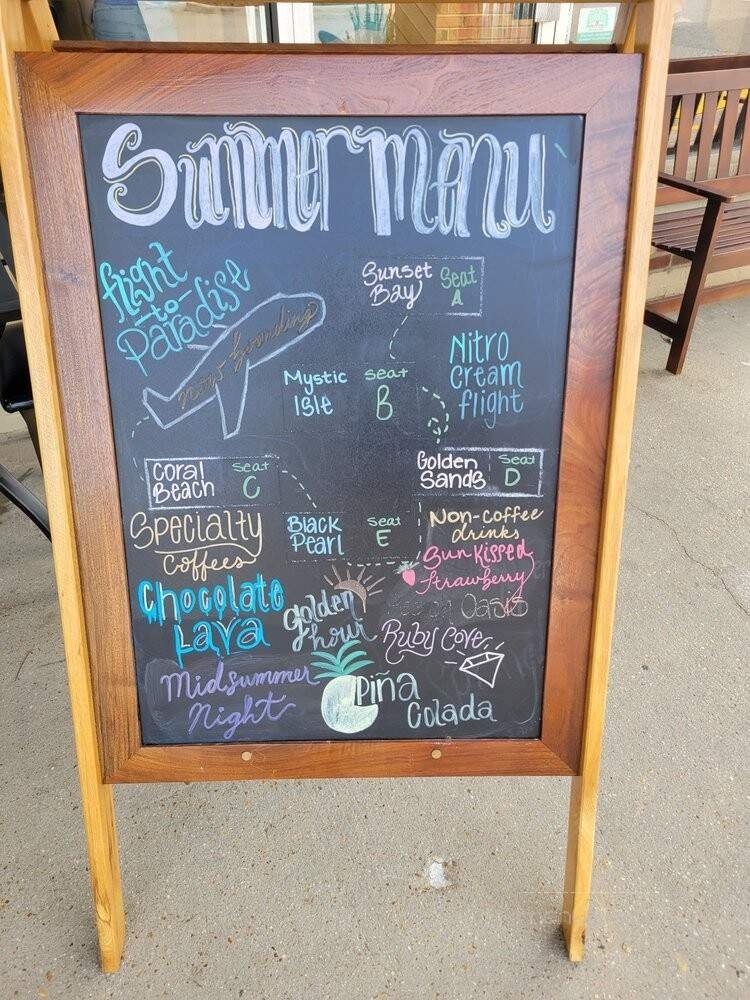 Summer Menu
flight
-to-
Paradise
now boarding
Sunset
Bay
Seat
A
Mystic
Isle
Seat
B
Nitro
Cream
flight
Coral
Beach
Seat
C
Golden
Sands
Seat
D
Black
Pearl
Seat
E
Specialty
Coffees
Non-coffee
drinks
Chocolate
Lava
golden
hour
Sunkissed
Strawberry
Oasis
Ruby Cove
Midsummer
Night
Piña
Colada